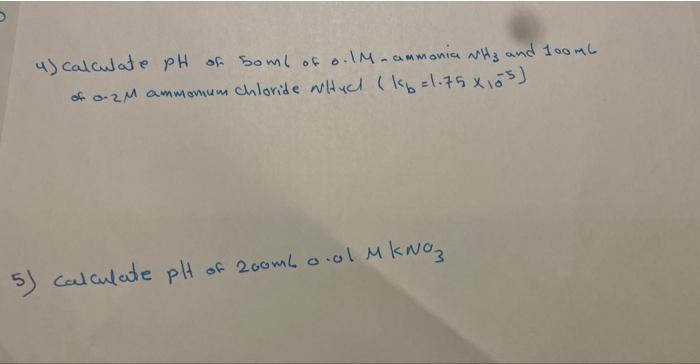 4) calculate pH of 50ml of 0.1M-ammonia NH3 and 100mL
of 0.2M ammomum chloride NH4cl (kb=1.75 x10-5)
5) calculate pH of 200mL 0.01 M kNO3